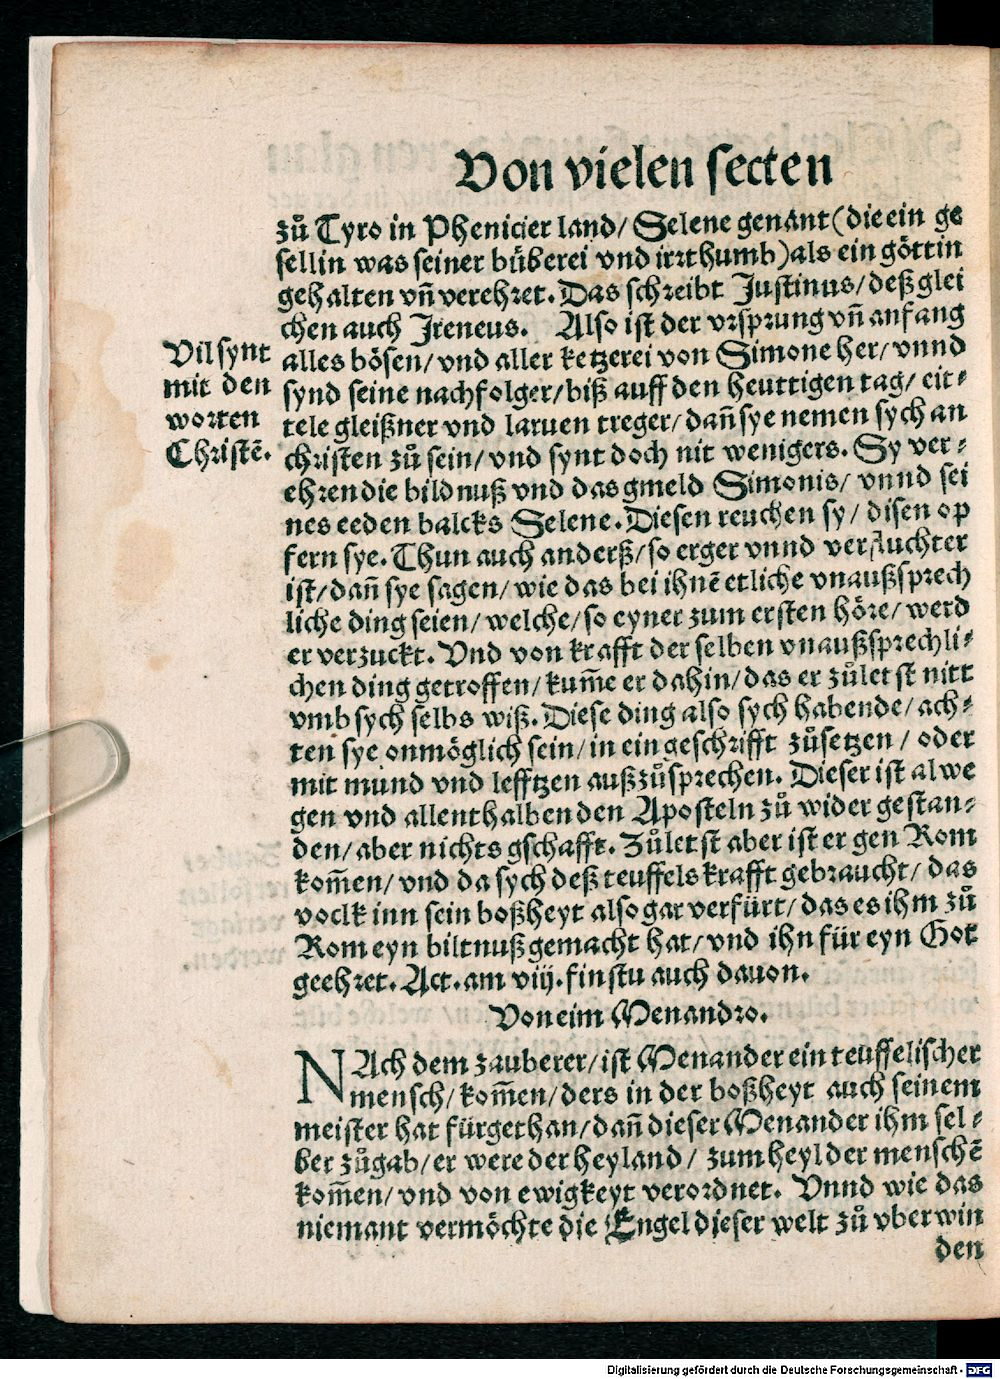 Von vielen secten
zů Tyro in Phenicier land/ Selene genant (die ein ge
sellin was seiner büberei vnd irrthumb) als ein göttin
gehalten vñ verehret. Das schreibt Justinus/ deßglei
chen auch Jreneus. Also ist der vrsprung vñ anfang
alles bösen/ vnd aller ketzerei von Simone her/ vnnd
synd seine nachfolger/ biß auff den heuttigen tag/ eit⸗
tele gleißner vnd laruen treger/ dañ sye nemen sych an
christen zů sein/ vnd synt doch nit wenigers. Sy ver⸗
ehren die bildnuß vnd das gmeld Simonis/ vnnd sei
nes eeden balcks Selene. Diesen reuchen sy/ disen op
fern sye. Thun auch anderß/ so erger vnnd verfluchter
ist/ dañ sye sagen/ wie das bei ihnẽ etliche vnaußsprech
liche ding seien/ welche/ so eyner zum ersten höre/ werd
er verzuckt. Vnd von krafft der selben vnaußsprechli⸗
chen ding getroffen/ kum̃e er dahin/ das er zůletst nitt
vmb sych selbs wiß. Diese ding also sych habende/ ach⸗
ten sye onmöglich sein/ in ein geschrifft zůsetzen/ oder
mit mund vnd lefftzen außzůsprechen. Dieser ist alwe
gen vnd allenthalben den Aposteln zů wider gestan⸗
den/ aber nichts gschafft. Zůletst aber ist er gen Rom
kom̃en/ vnd da sych deß teuffels krafft gebraucht/ das
voclk inn sein boßheyt also gar verfürt/ das es ihm zů
Rom eyn biltnuß gemacht hat/ vnd ihn für eyn Got
geehret. Act. am viij. finstu auch dauon.
Vil synt
mit den
worten
Christẽ.
Von eim Menandro.
NAch dem zauberer/ ist Menander ein teuffelischer
mensch/ kom̃en/ ders in der boßheyt auch seinem
meister hat fürgethan/ dañ dieser Menander ihm sel⸗
ber zůgab/ er were der heyland/ zum heyl der menschẽ
kom̃en/ vnd von ewigkeyt verordnet. Vnnd wie das
niemant vermöchte die Engel dieser welt zů vberwin
den
Digitalisierung gefördert durch die Deutsche Forschungsgemeinschaft - DFG